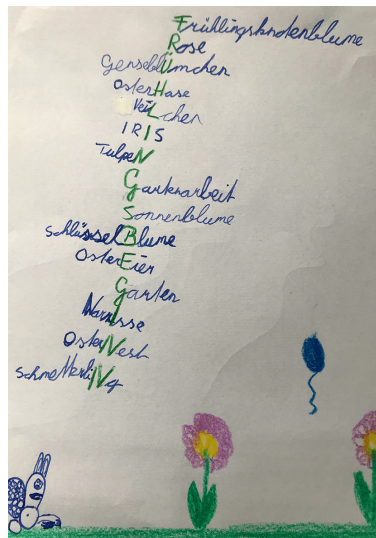 Frühlingsknotenblume
Rose
Genseblümchen
OsterHase
VeiLchen
IRIS
TulpeN
Gartenarbeit
Sonnenblume
SchlüsselBlume
OsterEier
Garten
NarzIsse
OsterNest
SchmetterliNg